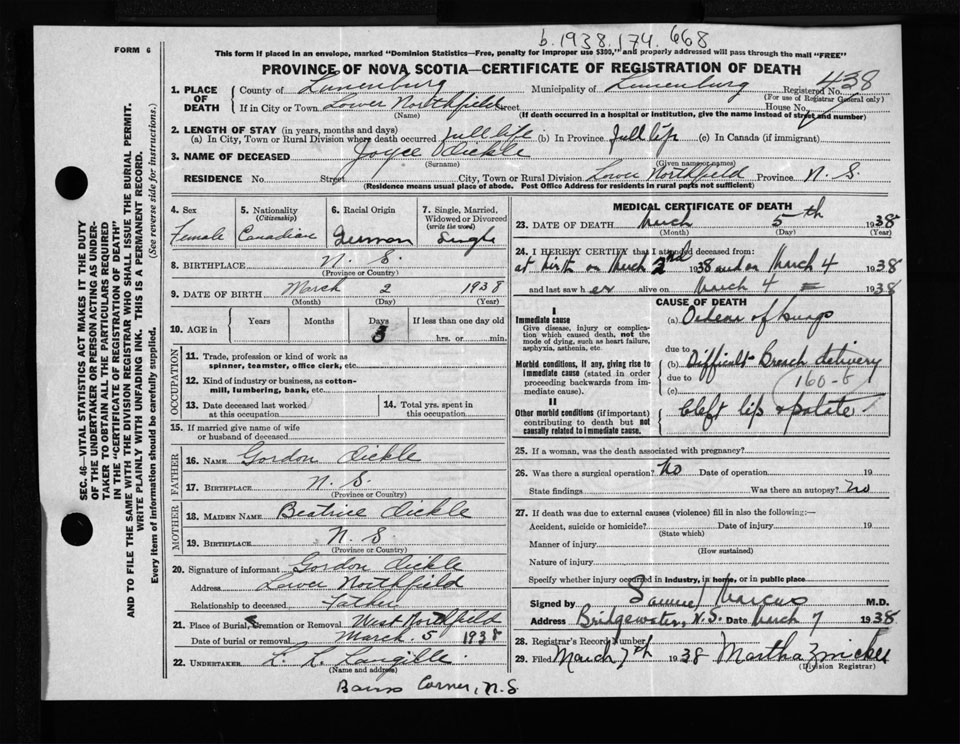 b.1938.174.668
FORM 6
This form if placed in an envelope, marked "Dominion Statistics—Free, penalty for improper use $300," and properly addressed will pass through the mail "FREE"
PROVINCE OF NOVA SCOTIA—CERTIFICATE OF REGISTRATION OF DEATH
SEC. 46—VITAL STATISTICS ACT MAKES IT THE DUTY
OF THE UNDERTAKER OR PERSON ACTING AS UNDER-
TAKER TO OBTAIN ALL THE PARTICULARS REQUIRED
IN THE "CERTIFICATE OF REGISTRATION OF DEATH"
AND TO FILE THE SAME WITH THE DIVISION REGISTRAR WHO SHALL ISSUE THE BURIAL PERMIT.
WRITE PLAINLY WITH UNFADING INK. THIS IS A PERMANENT RECORD.
Every item of information should be carefully supplied. (See reverse side for instructions.)
1. PLACE OF DEATH
County of Lunenburg Municipality of Lunenburg Registered No. 438
(For use of Registrar General only)
If in City or Town Lower Northfield Street House No.
(Name) (If death occurred in a hospital or institution, give the name instead of street and number)
2. LENGTH OF STAY (in years, months and days)
(a) In City, Town or Rural Division where death occurred full life (b) In Province full life (c) In Canada (if immigrant)
3. NAME OF DECEASED Joyce Dickle
(Surname) (Given name or names)
RESIDENCE No. Street City, Town or Rural Division Lower Northfield Province N. S.
(Residence means usual place of abode. Post Office Address for residents in rural parts not sufficient)
4. Sex Female
5. Nationality (Citizenship) Canadian
6. Racial Origin German
7. Single, Married, Widowed or Divorced (write the word) Single
8. BIRTHPLACE N. S.
(Province or Country)
9. DATE OF BIRTH March 2 1938
(Month) (Day) (Year)
10. AGE in Years Months Days 3 If less than one day old
hrs. or min.
OCCUPATION
11. Trade, profession or kind of work as
spinner, teamster, office clerk, etc.
12. Kind of industry or business, as cotton-
mill, lumbering, bank, etc.
13. Date deceased last worked
at this occupation
14. Total yrs. spent in
this occupation
15. If married give name of wife
or husband of deceased
FATHER
16. NAME Gordon Dickle
17. BIRTHPLACE N. S.
(Province or Country)
MOTHER
18. MAIDEN NAME Beatrice Dickle
19. BIRTHPLACE N. S
(Province or Country)
20. Signature of informant Gordon Dickle
Address Lower Northfield
Relationship to deceased Father
21. Place of Burial, Cremation or Removal West Northfield
Date of burial or removal March. 5 1938
22. UNDERTAKER L. L. Langille
(Name and address)
Barss Corner, N.S
MEDICAL CERTIFICATE OF DEATH
23. DATE OF DEATH March 5th 1938
(Month) (Day) (Year)
24. I HEREBY CERTIFY that I attended deceased from:
at birth on March 2nd 1938 and on March 4 1938
and last saw h er alive on March 4 1938
CAUSE OF DEATH
I
Immediate cause
Give disease, injury or complica-
tion which caused death, not the
mode of dying, such as heart failure,
asphyxia, asthenia, etc.
(a) Oedema of lungs
due to
Morbid conditions, if any, giving rise to
immediate cause (stated in order
proceeding backwards from im-
mediate cause).
(b) Difficult Breech delivery
due to
(c)
160-b
II
Other morbid conditions (if important)
contributing to death but not
causally related to immediate cause.
Cleft lip & palate
25. If a woman, was the death associated with pregnancy?
26. Was there a surgical operation? No Date of operation 19
State findings Was there an autopsy? no
27. If death was due to external causes (violence) fill in also the following:—
Accident, suicide or homicide? Date of injury 19
(State which)
Manner of injury
(How sustained)
Nature of injury
Specify whether injury occurred in industry, in home, or in public place
Signed by Samuel Marcus M.D.
Address Bridgewater, N.S. Date March 7 1938
28. Registrar's Record Number
29. Filed March 7th 1938 Martha Zwicker
(Division Registrar)